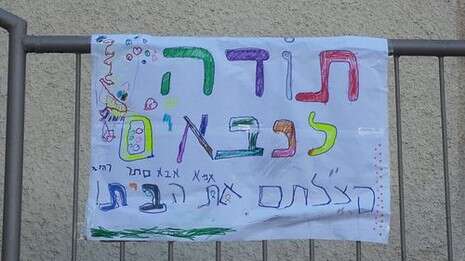 תודה
לכבאים
אמא אבא סתר
הצלתם את הביתו